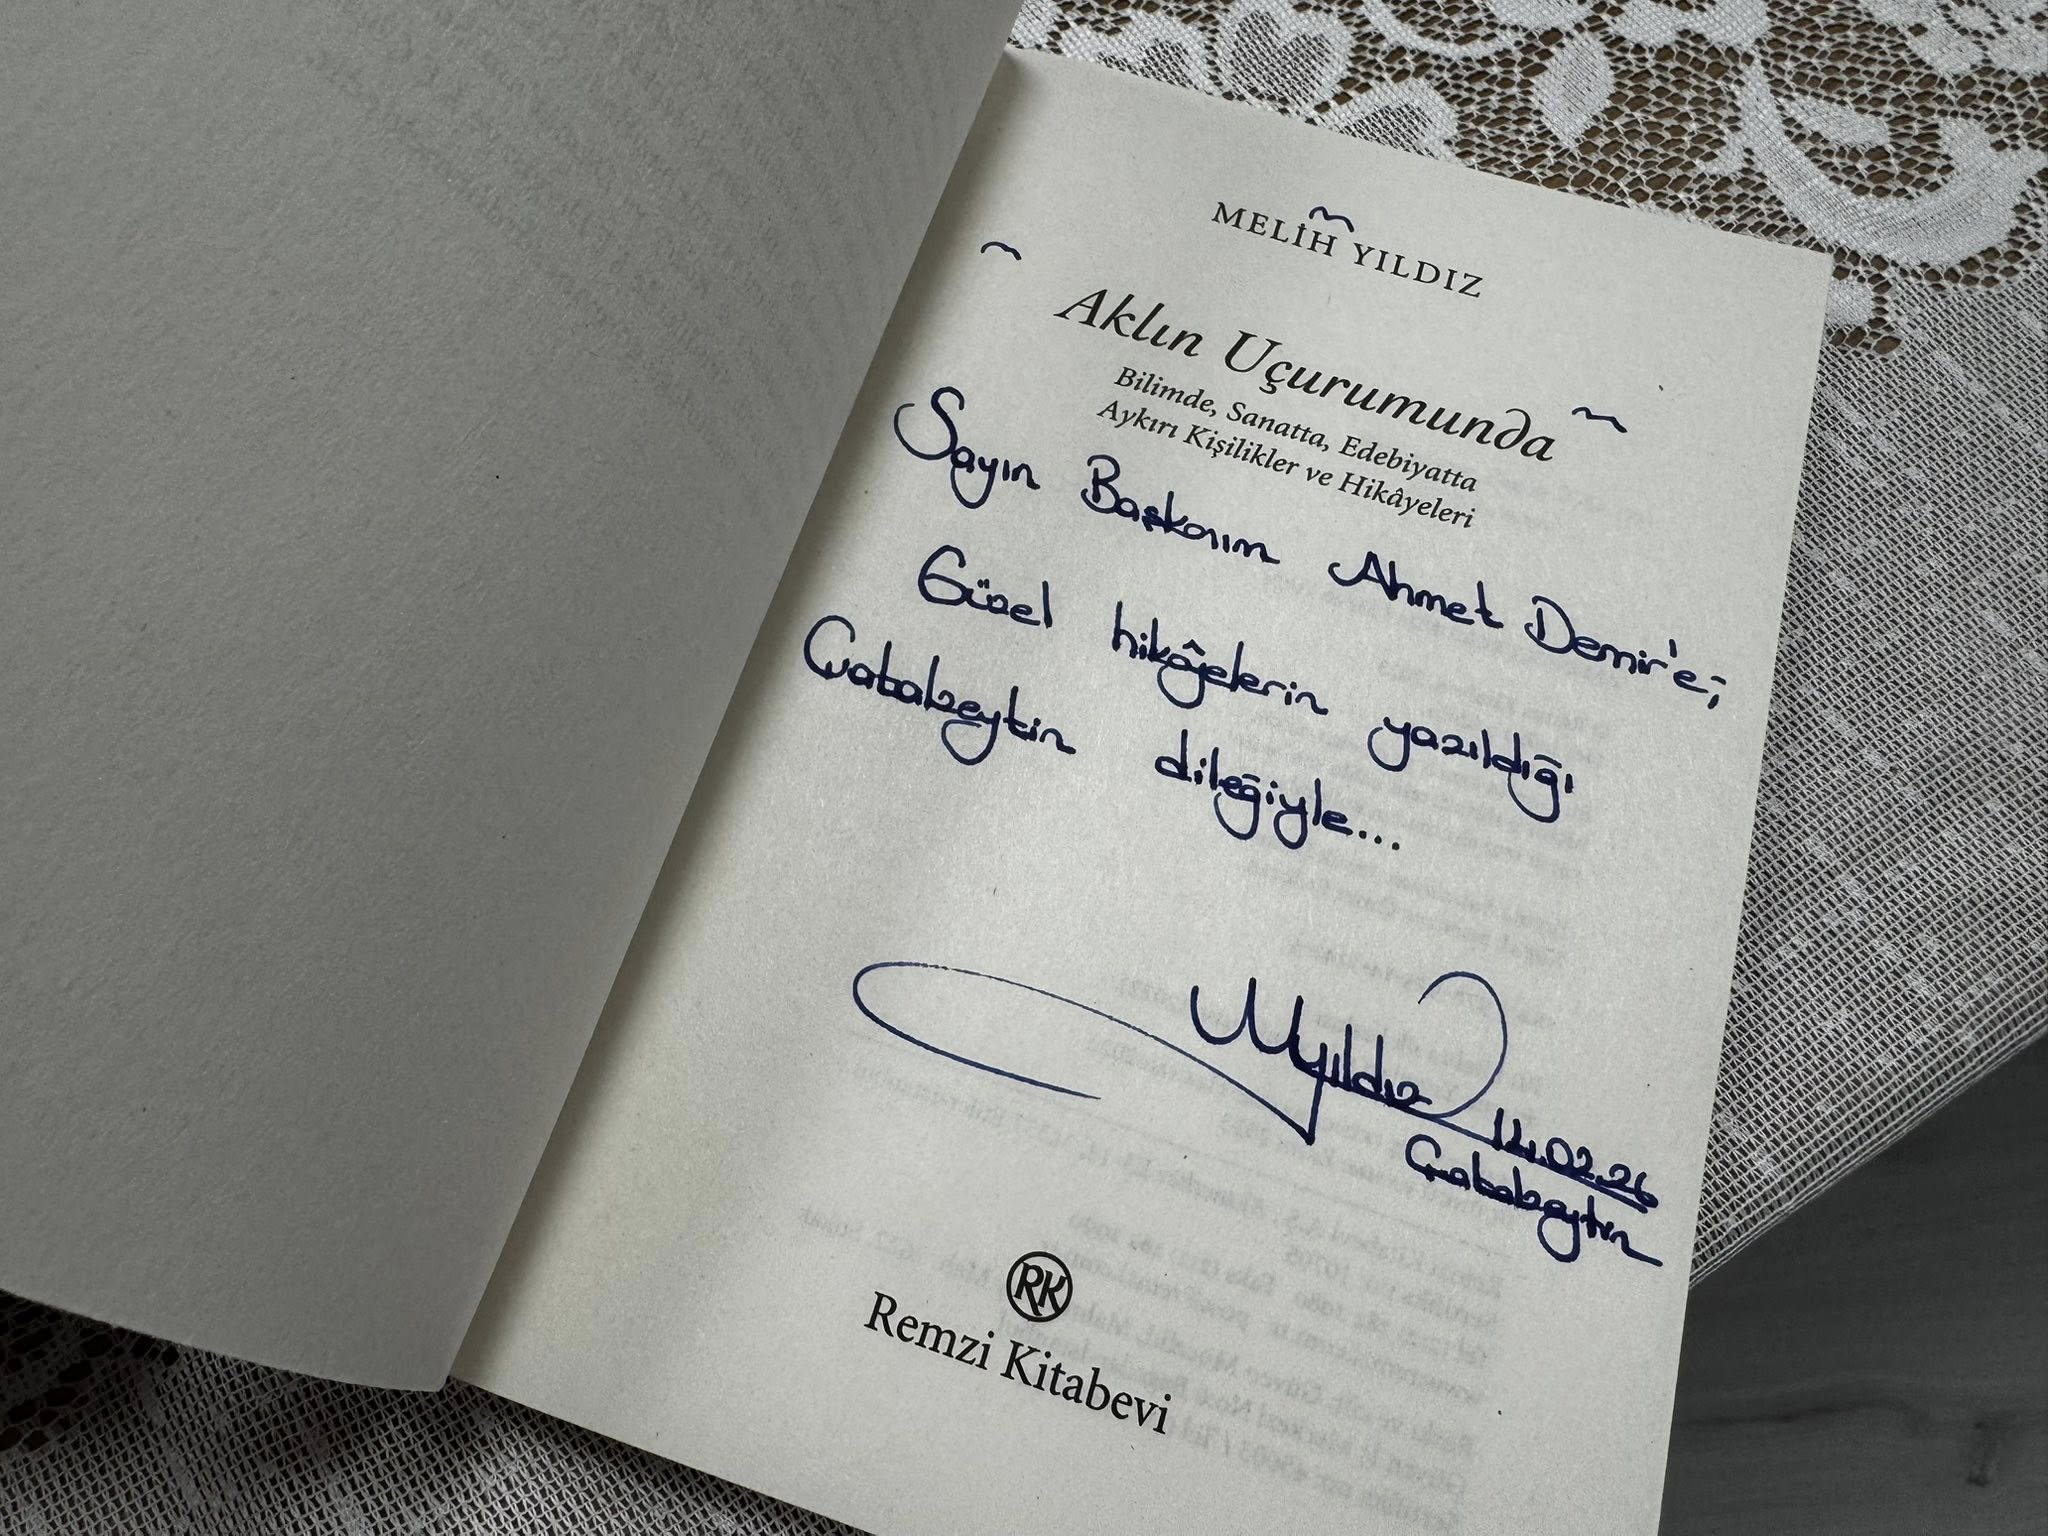 MELİH YILDIZ
Aklın Uçurumunda
Bilimde, Sanatta, Edebiyatta
Aykırı Kişilikler ve Hikâyeleri
Sayın Başkanım Ahmet Demir'e;
Güzel hikâyelerin yazıldığı
Çatalzeytin dileğiyle...
Myıldız
14.02.26
Çatalzeytin
RK
Remzi Kitabevi